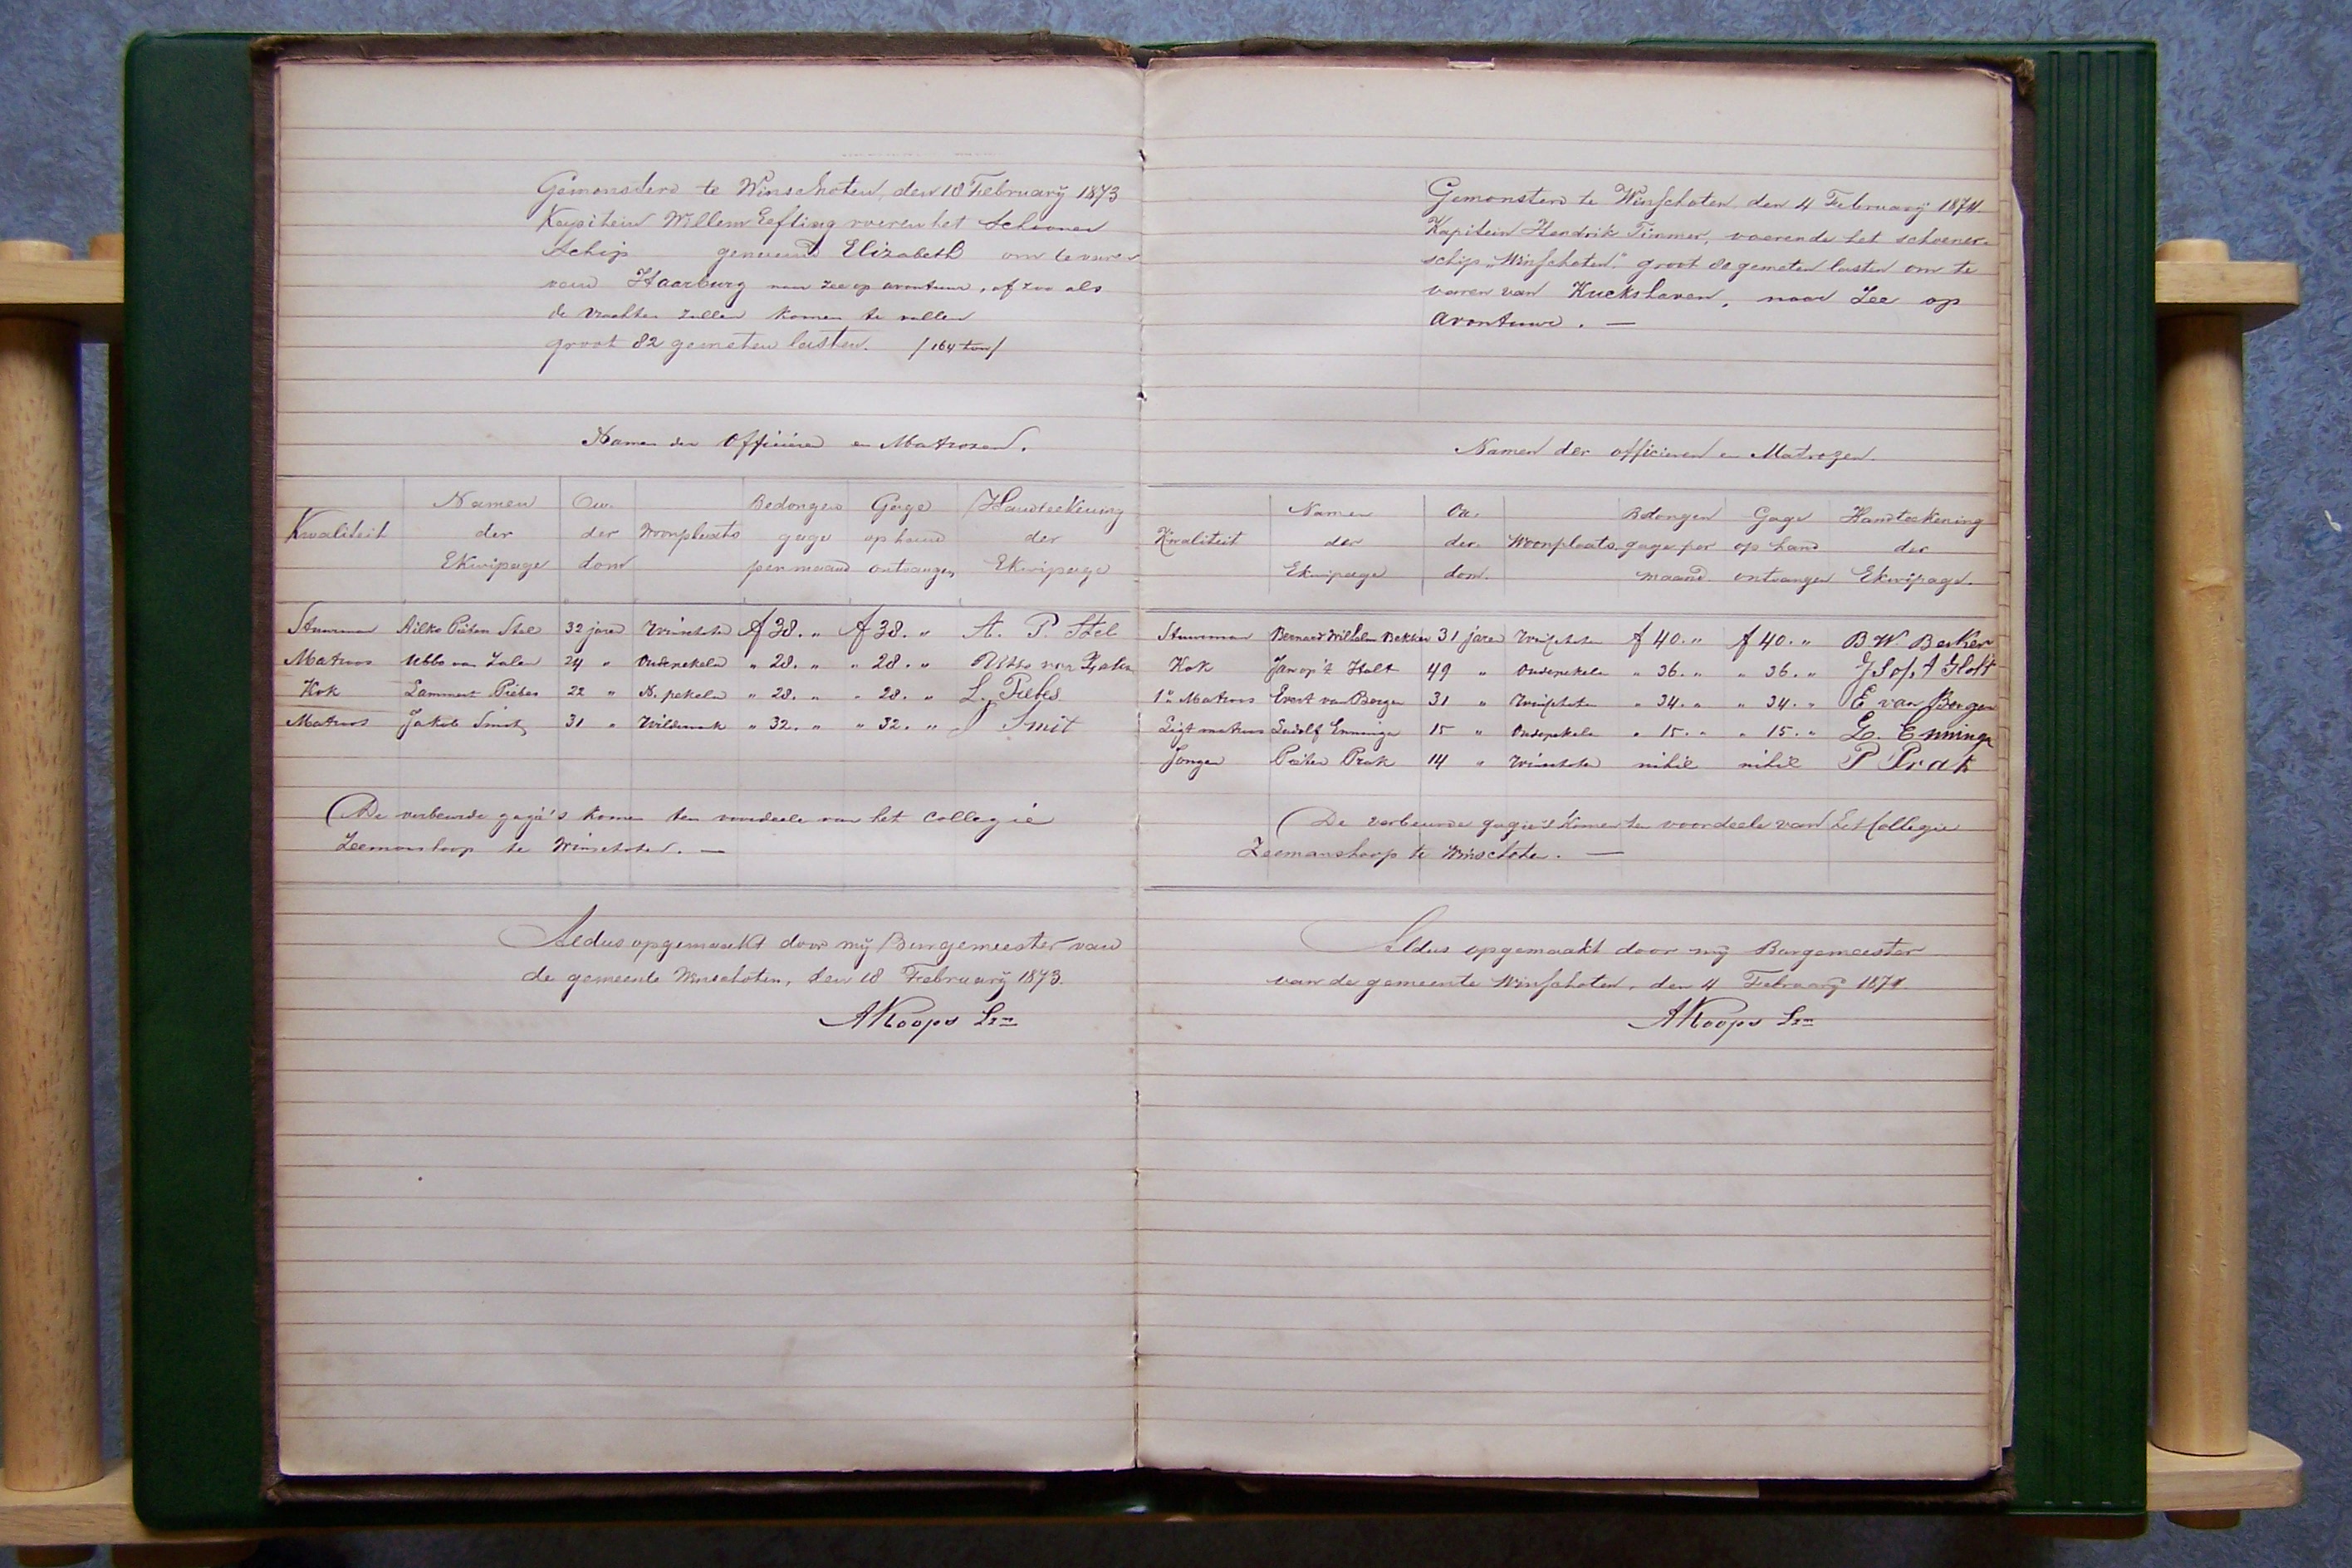 Gemonsterd te Winschoten, den 18 February 1873
Kapitein Willem Eefting voeren het Schooner
Schip genaamd Elizabeth om te varen
van Haarburg naar Zee op avontuur, of zoo als
de vrachten zullen komen te vallen
groot 82 gemeten lasten. /164 ton/
Namen der Officieren en Matrozen.
Namen Ou- Bedongen Gage Handteekening
Kwaliteit der der Woonplaats gage op hand der
Ekwipage dom per maand ontvangen Ekwipage
Stuurman Ailko Pieter Stel 32 jaren Winschoten f 38. " f 38. " A. P. Stel
Matroos Ubbo van Zalen 24 " Oudepekela " 28. " " 28. " Ubbo van
Kok Lammert Piebes 22 " N. pekela " 28. " " 28. " L. Piebes
Matroos Jakob Smit 31 " Wildervank " 32. " " 32. " J Smit
De verbeurde gagie's komen ten voordeele van het Collegie
Zeemanshoop te Winschoten. —
Aldus opgemaakt door mij Burgemeester van
de gemeente Winschoten, den 18 February 1873.
AKoops Lzn
Gemonsterd te Winschoten, den 4 February 1874.
Kapitein Hendrik Timmer, voerende het schoener-
schip "Winschoten" groot 80 gemeten lasten om te
varen van Kuckshaven, naar Zee op
avontuur. —
Namen der officieren en Matrozen.
Namen Ou- Bedongen Gage Handteekening
Kwaliteit der der- Woonplaats gage per op hand der
Ekwipage dom. maand ontvangen Ekwipage.
Stuurman Bernard Wilhelm Bekker 31 jaren Winschoten f 40. " f 40. " B W. Bekker
Kok Jan op 't Holt 49 " Oudepekela " 36. " " 36. " J op t Holt
1e Matroos Evert van Bergen 31 " Winschoten " 34. " " 34. " E van Bergen
Ligt matroos Ludolf Enninga 15 " Oudepekela " 15. " " 15. " L. Enninga
Jongen Pieter Prak 14 " Winschoten nihil nihil P Prak
De verbeurde gagie's komen ten voordeele van het Collegie
Zeemanshoop te Winschoten. —
Aldus opgemaakt door mij Burgemeester
van de gemeente Winschoten, den 4 February 1874.
AKoops Lzn